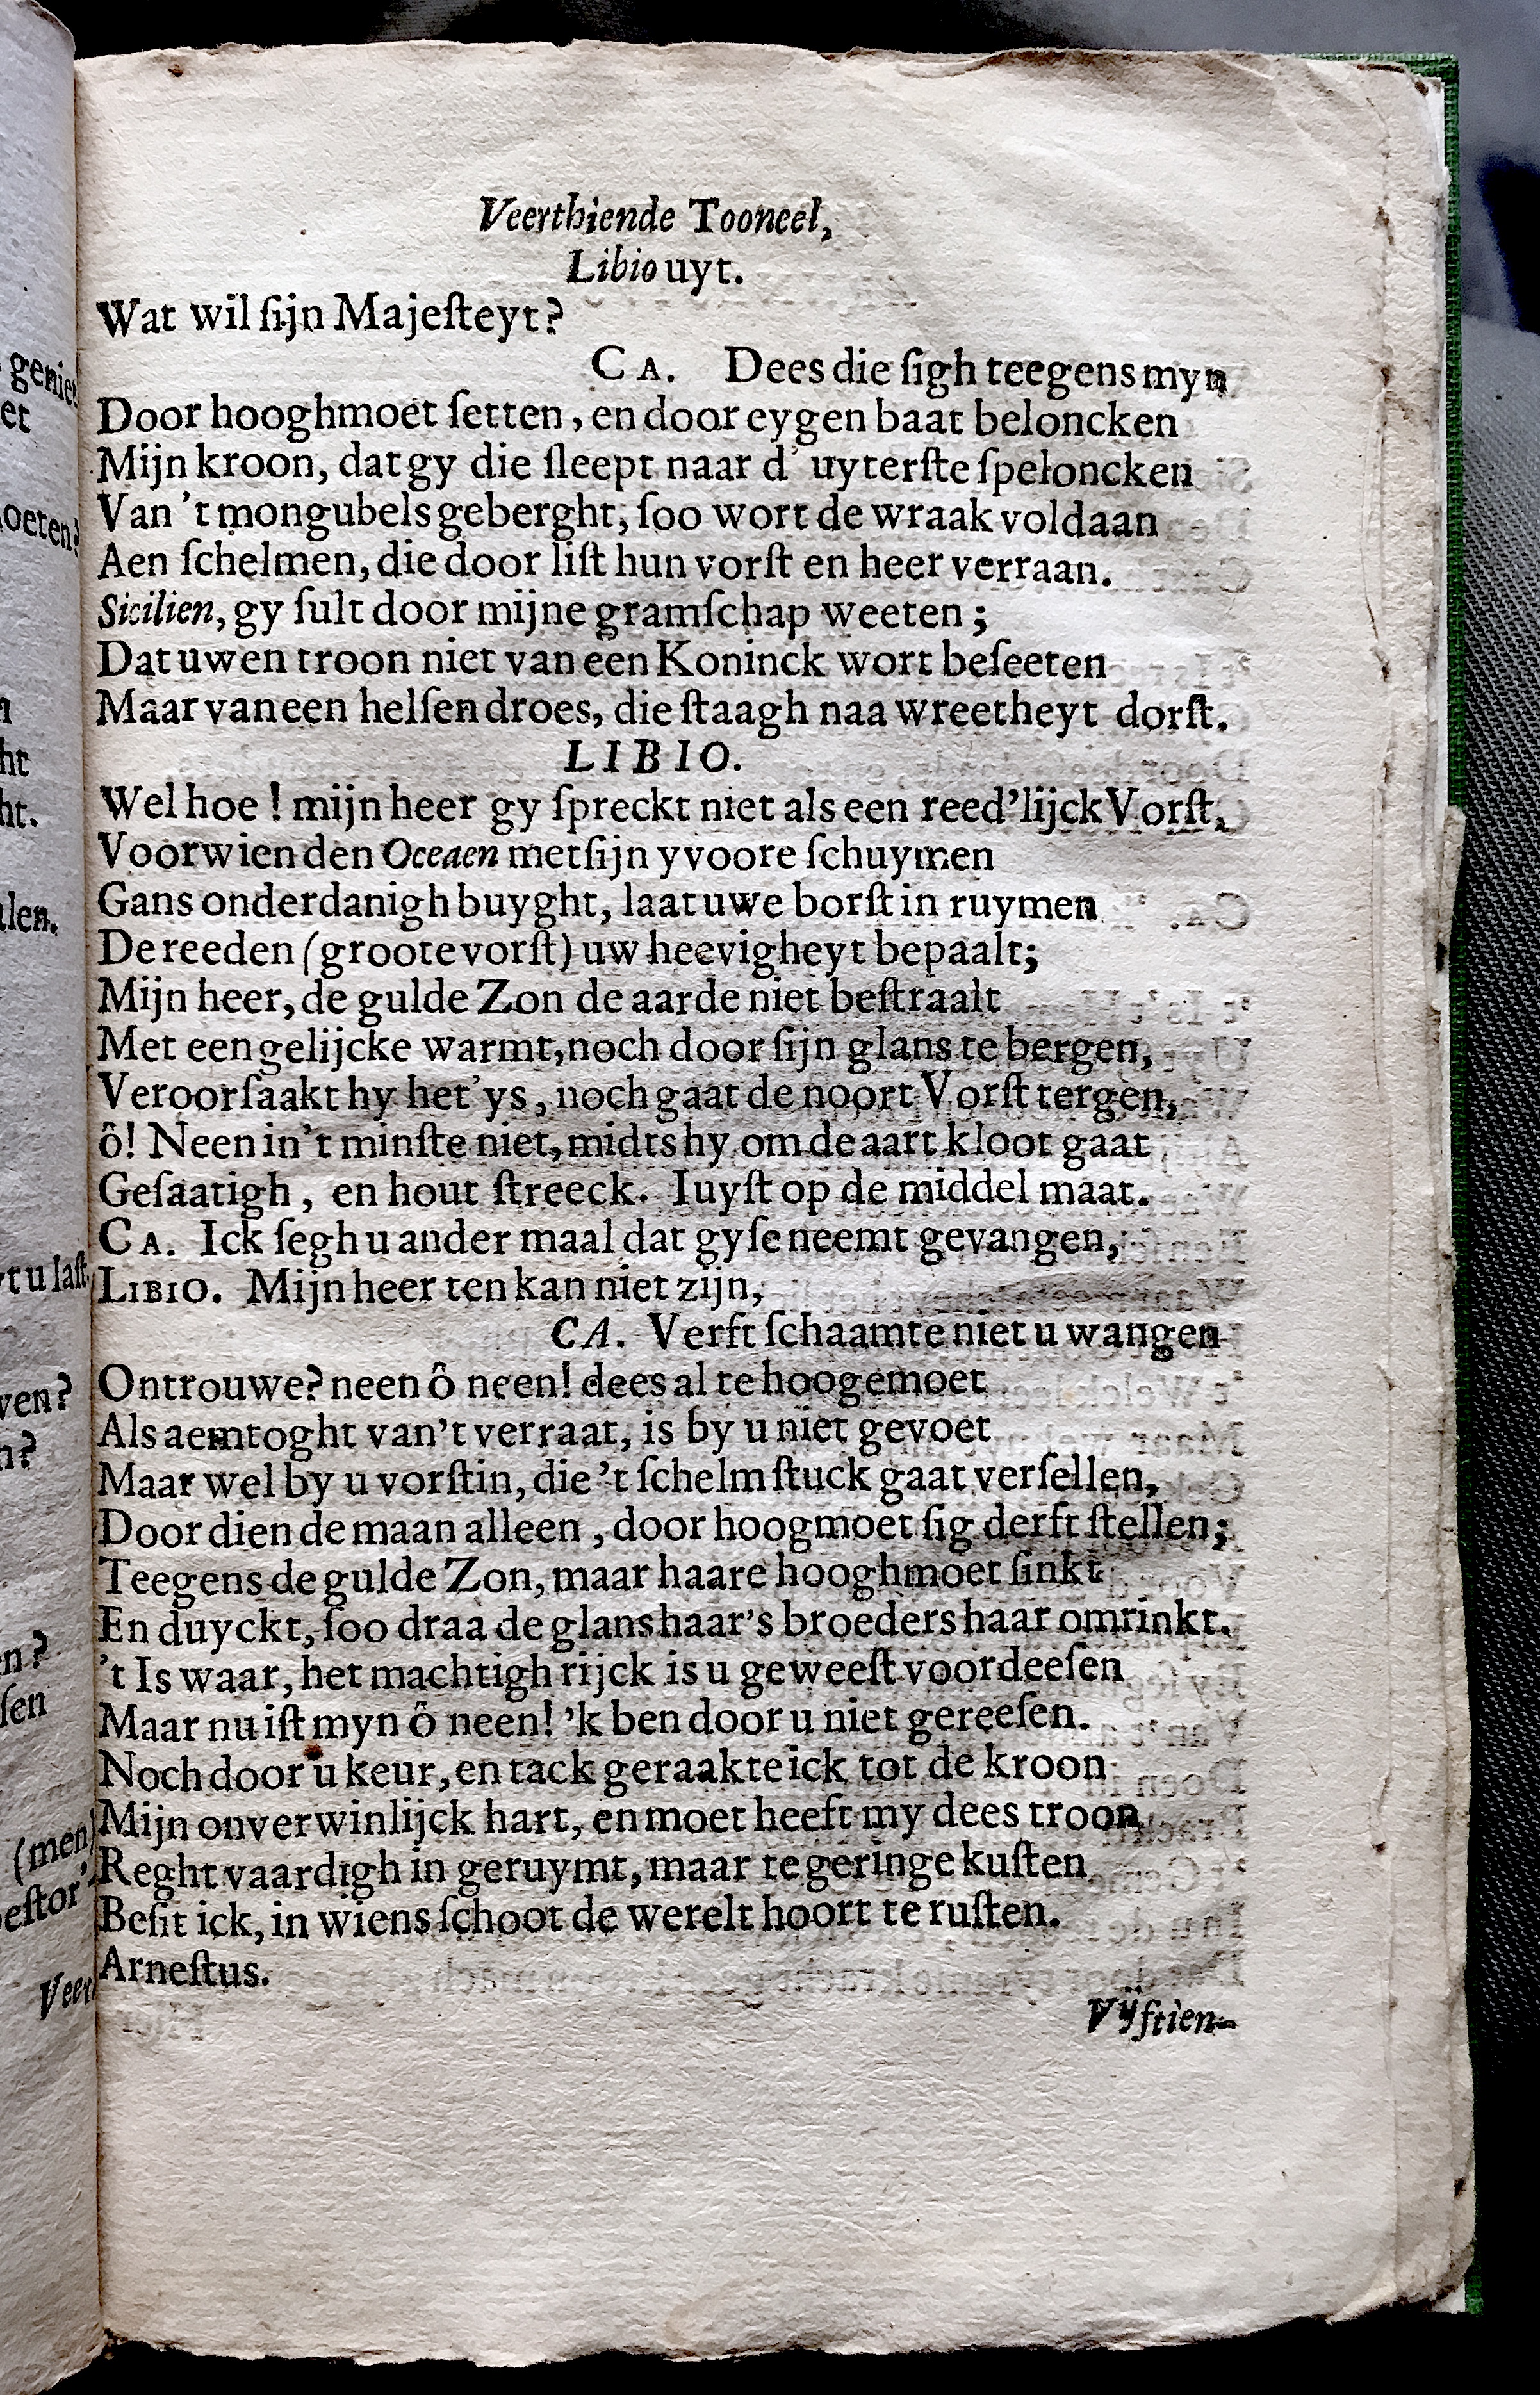 Veerthiende Tooneel,
Libio uyt.
Wat wil ſijn Majeſteyt?
CA. Dees die ſigh teegens myn
Door hooghmoet ſetten, en door eygen baat beloncken
Mijn kroon, dat gy die ſleept naar d' uyterſte ſpeloncken
Van 't mongubels geberght, ſoo wort de wraak voldaan
Aen ſchelmen, die door liſt hun vorſt en heer verraan.
Sicilien, gy ſult door mijne gramſchap weeten;
Dat uwen troon niet van een Koninck wort beſeeten
Maar van een helſen droes, die ſtaagh naa wreetheyt dorſt.
LIBIO.
Wel hoe! mijn heer gy ſpreckt niet als een reed'lijck Vorſt,
Voor wien den Oceaen met ſijn yvoore ſchuymen
Gans onderdanigh buyght, laat uwe borſt in ruymen
De reeden (groote vorſt) uw heevigheyt bepaalt;
Mijn heer, de gulde Zon de aarde niet beſtraalt
Met een gelijcke warmt, noch door ſijn glans te bergen,
Veroorſaakt hy het ys, noch gaat de noort Vorſt tergen,
ô! Neen in't minſte niet, midts hy om de aart kloot gaat
Geſaatigh, en hout ſtreeck. Iuyſt op de middel maat.
CA. Ick ſegh u ander maal dat gy ſe neemt gevangen,
LIBIO. Mijn heer ten kan niet zijn,
CA. Verft ſchaamte niet u wangen
Ontrouwe? neen ô neen! dees al te hooge moet
Als aemtoght van't verraat, is by u niet gevoet
Maar wel by u vorſtin, die 't ſchelmſtuck gaat verſellen,
Door dien de maan alleen, door hoogmoet ſig derft ſtellen;
Teegens de gulde Zon, maar haare hooghmoet ſinkt
En duyckt, ſoo draa de glans haar's broeders haar omrinkt.
't Is waar, het machtigh rijck is u geweeſt voor deeſen
Maar nu iſt myn ô neen! 'k ben door u niet gereeſen.
Noch door u keur, en tack geraakte ick tot de kroon
Mijn onverwinlijck hart, en moet heeft my dees troon
Reghtvaardigh in geruymt, maar te geringe kuſten
Beſit ick, in wiens ſchoot de werelt hoort te ruſten.
Arneſtus.
Vÿftien-